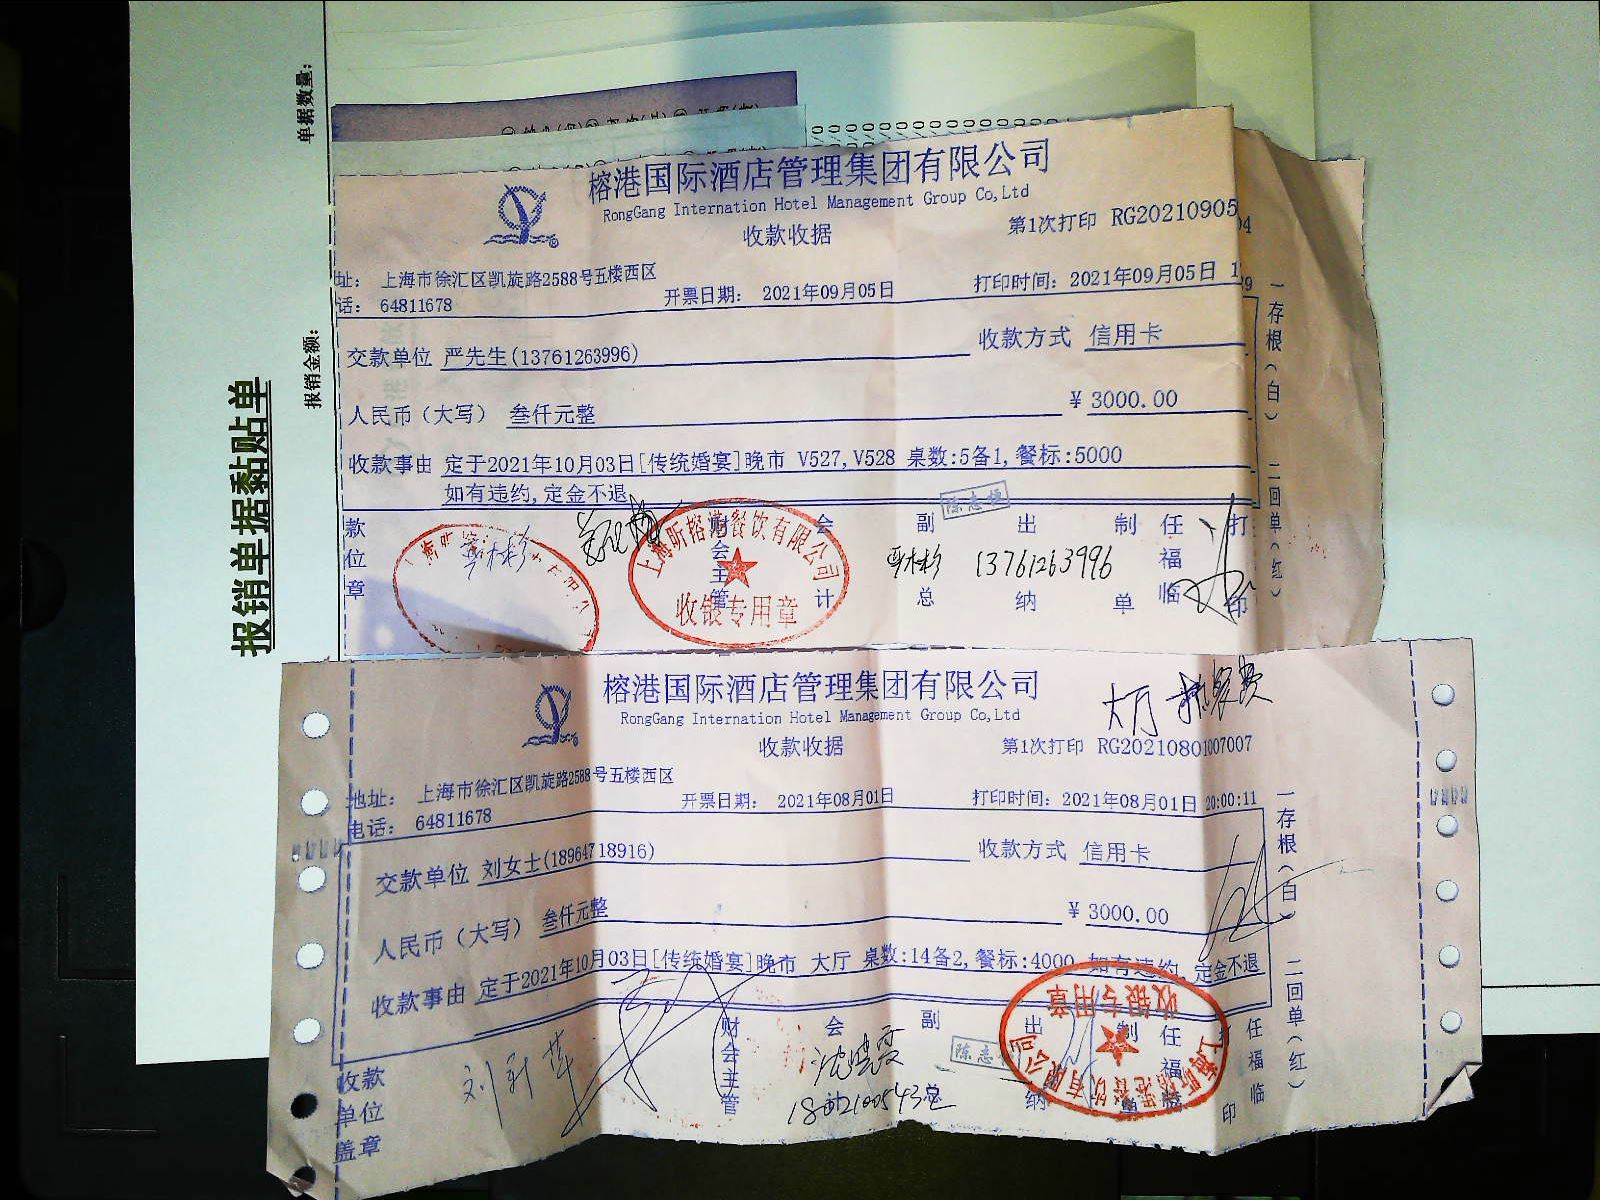 报销单据黏贴单
单据数量：
报销金额：
榕港国际酒店管理集团有限公司
RongGang Internation Hotel Management Group Co,Ltd
收款收据
第1次打印 RG20210905
址： 上海市徐汇区凯旋路2588号五楼西区
话： 64811678
开票日期： 2021年09月05日
打印时间：2021年09月05日
交款单位 严先生(13761263996)
收款方式 信用卡
人民币（大写） 叁仟元整
¥ 3000.00
收款事由 定于2021年10月03日[传统婚宴]晚市 V527,V528 桌数:5备1,餐标:5000
如有违约,定金不退
款位章
财会主管
会计
副总
出纳
制单
任福临
打印
陈志
13761263996
上海昕榕港餐饮有限公司
收银专用章
一存根（白） 二回单（红）
榕港国际酒店管理集团有限公司
RongGang Internation Hotel Management Group Co,Ltd
大厅
收款收据
第1次打印 RG20210801007007
地址： 上海市徐汇区凯旋路2588号五楼西区
电话： 64811678
开票日期： 2021年08月01日
打印时间：2021年08月01日 20:00:11
交款单位 刘女士(18964718916)
收款方式 信用卡
人民币（大写） 叁仟元整
¥ 3000.00
收款事由 定于2021年10月03日[传统婚宴]晚市 大厅 桌数:14备2,餐标:4000,如有违约,定金不退
收款单位盖章
财会主管
会
副总
出纳
制单
任福临
印
任福临
陈志
收银专用章
一存根（白） 二回单（红）